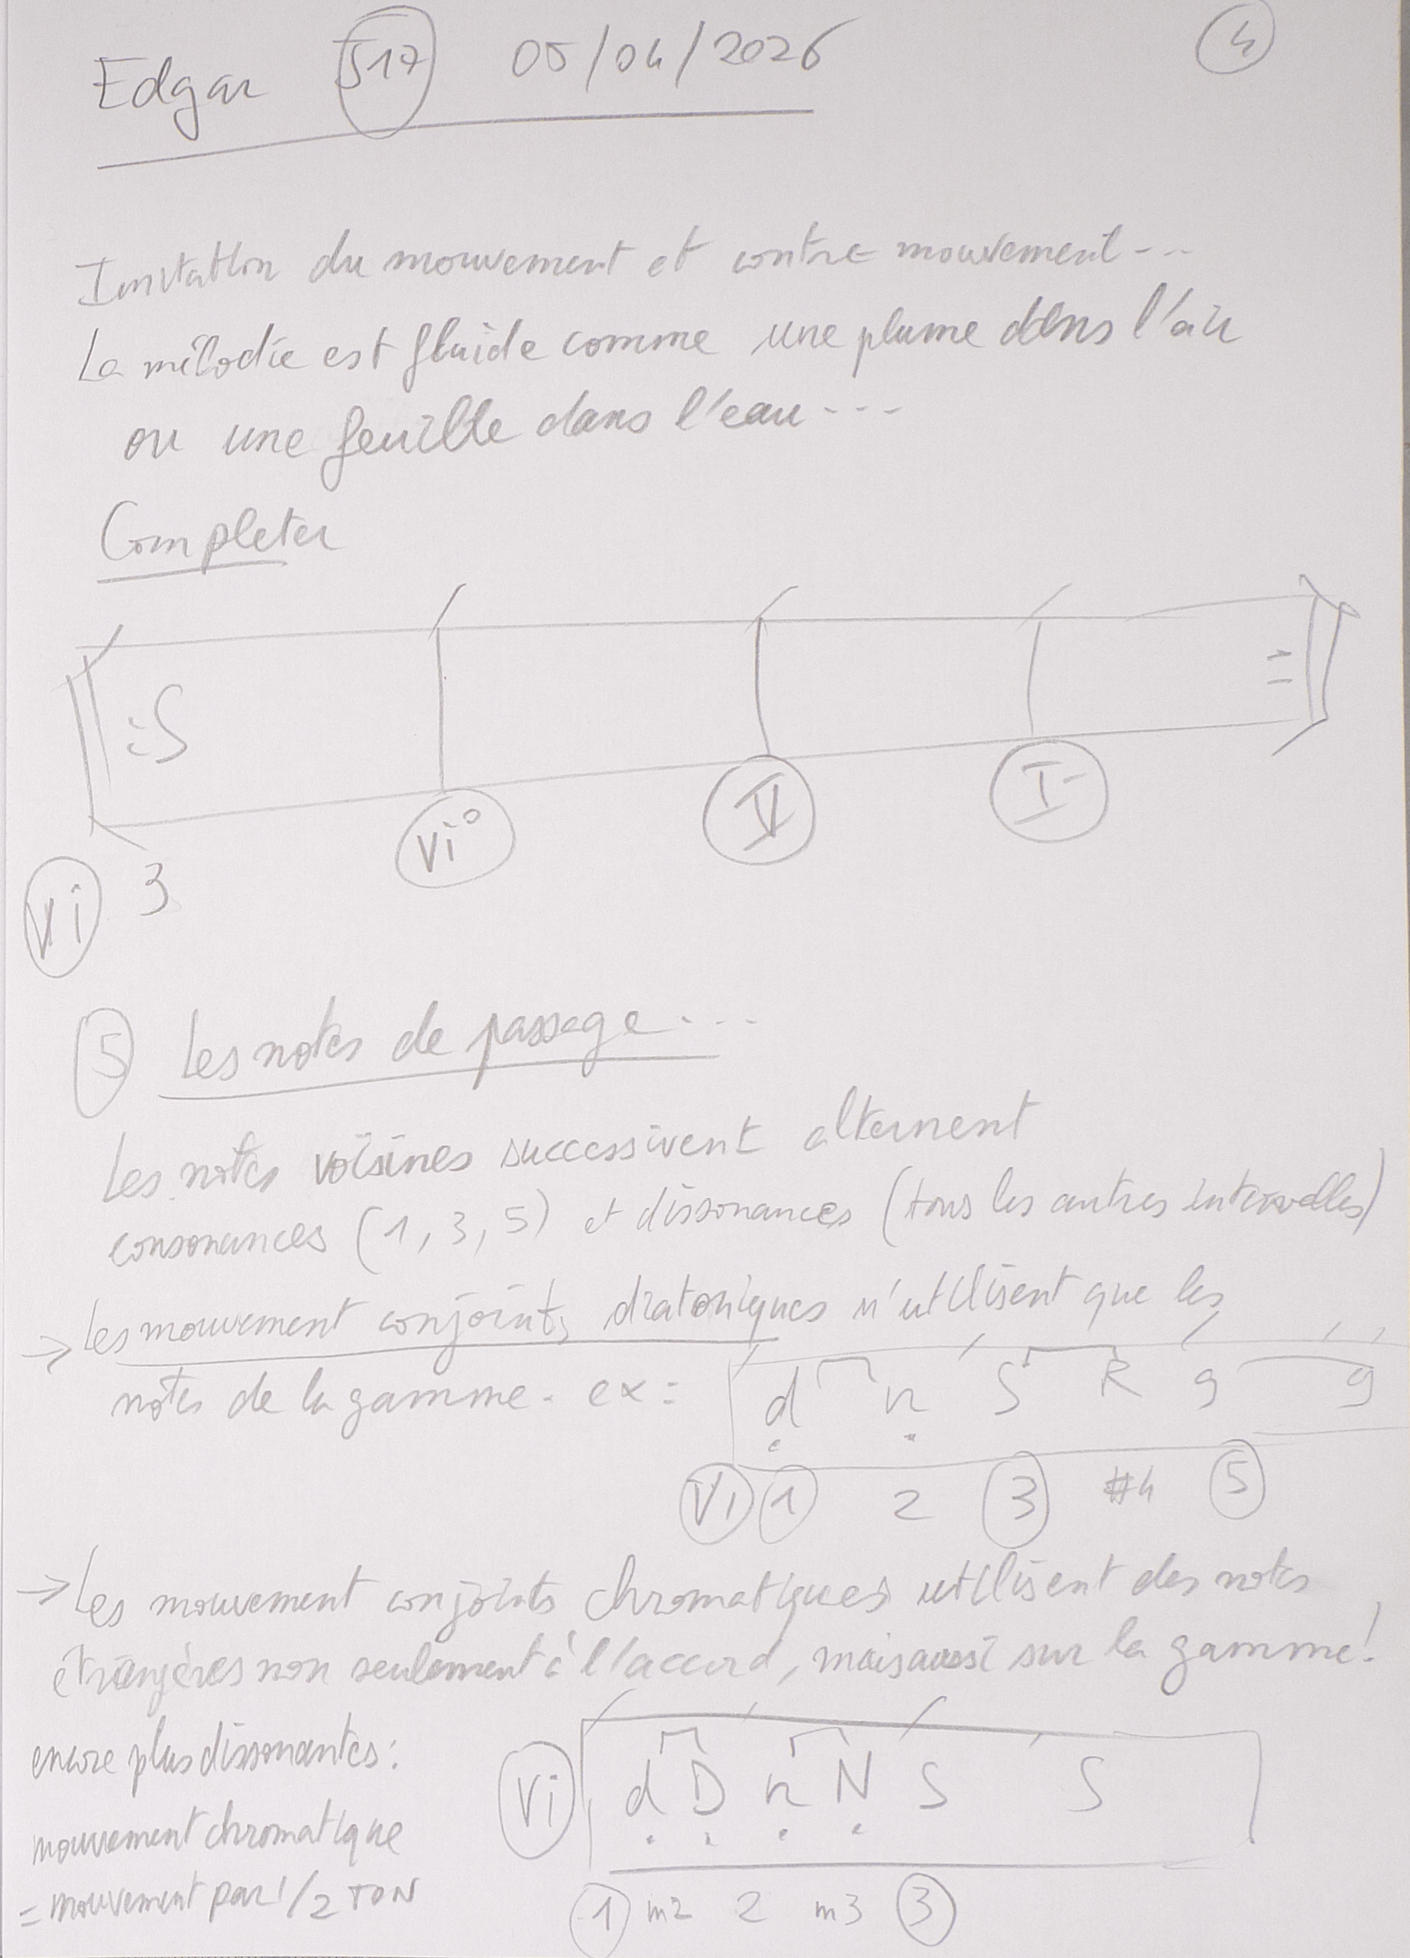 Edgar S17 05/04/2026 4
Imitation du mouvement et contre mouvement...
La mélodie est fluide comme une plume dans l'air
ou une feuille dans l'eau...
Completer
:S =
Vi 3 Vi° V I-
5 Les notes de passage...
Les notes voisines successivent alternent
consonances (1, 3, 5) et dissonances (tous les autres intervalles)
→ Les mouvement conjoints diatoniques n'utilisent que les
notes de la gamme. ex = d n S R g g
Vi 1 2 3 #4 5
→ Les mouvement conjoints chromatiques utilisent des notes
étrangères non seulement à l'accord, mais aussi sur la gamme!
encore plus dissonantes:
Vi d D n N S S
mouvement chromatique
= mouvement par 1/2 TON
1 m2 2 m3 3